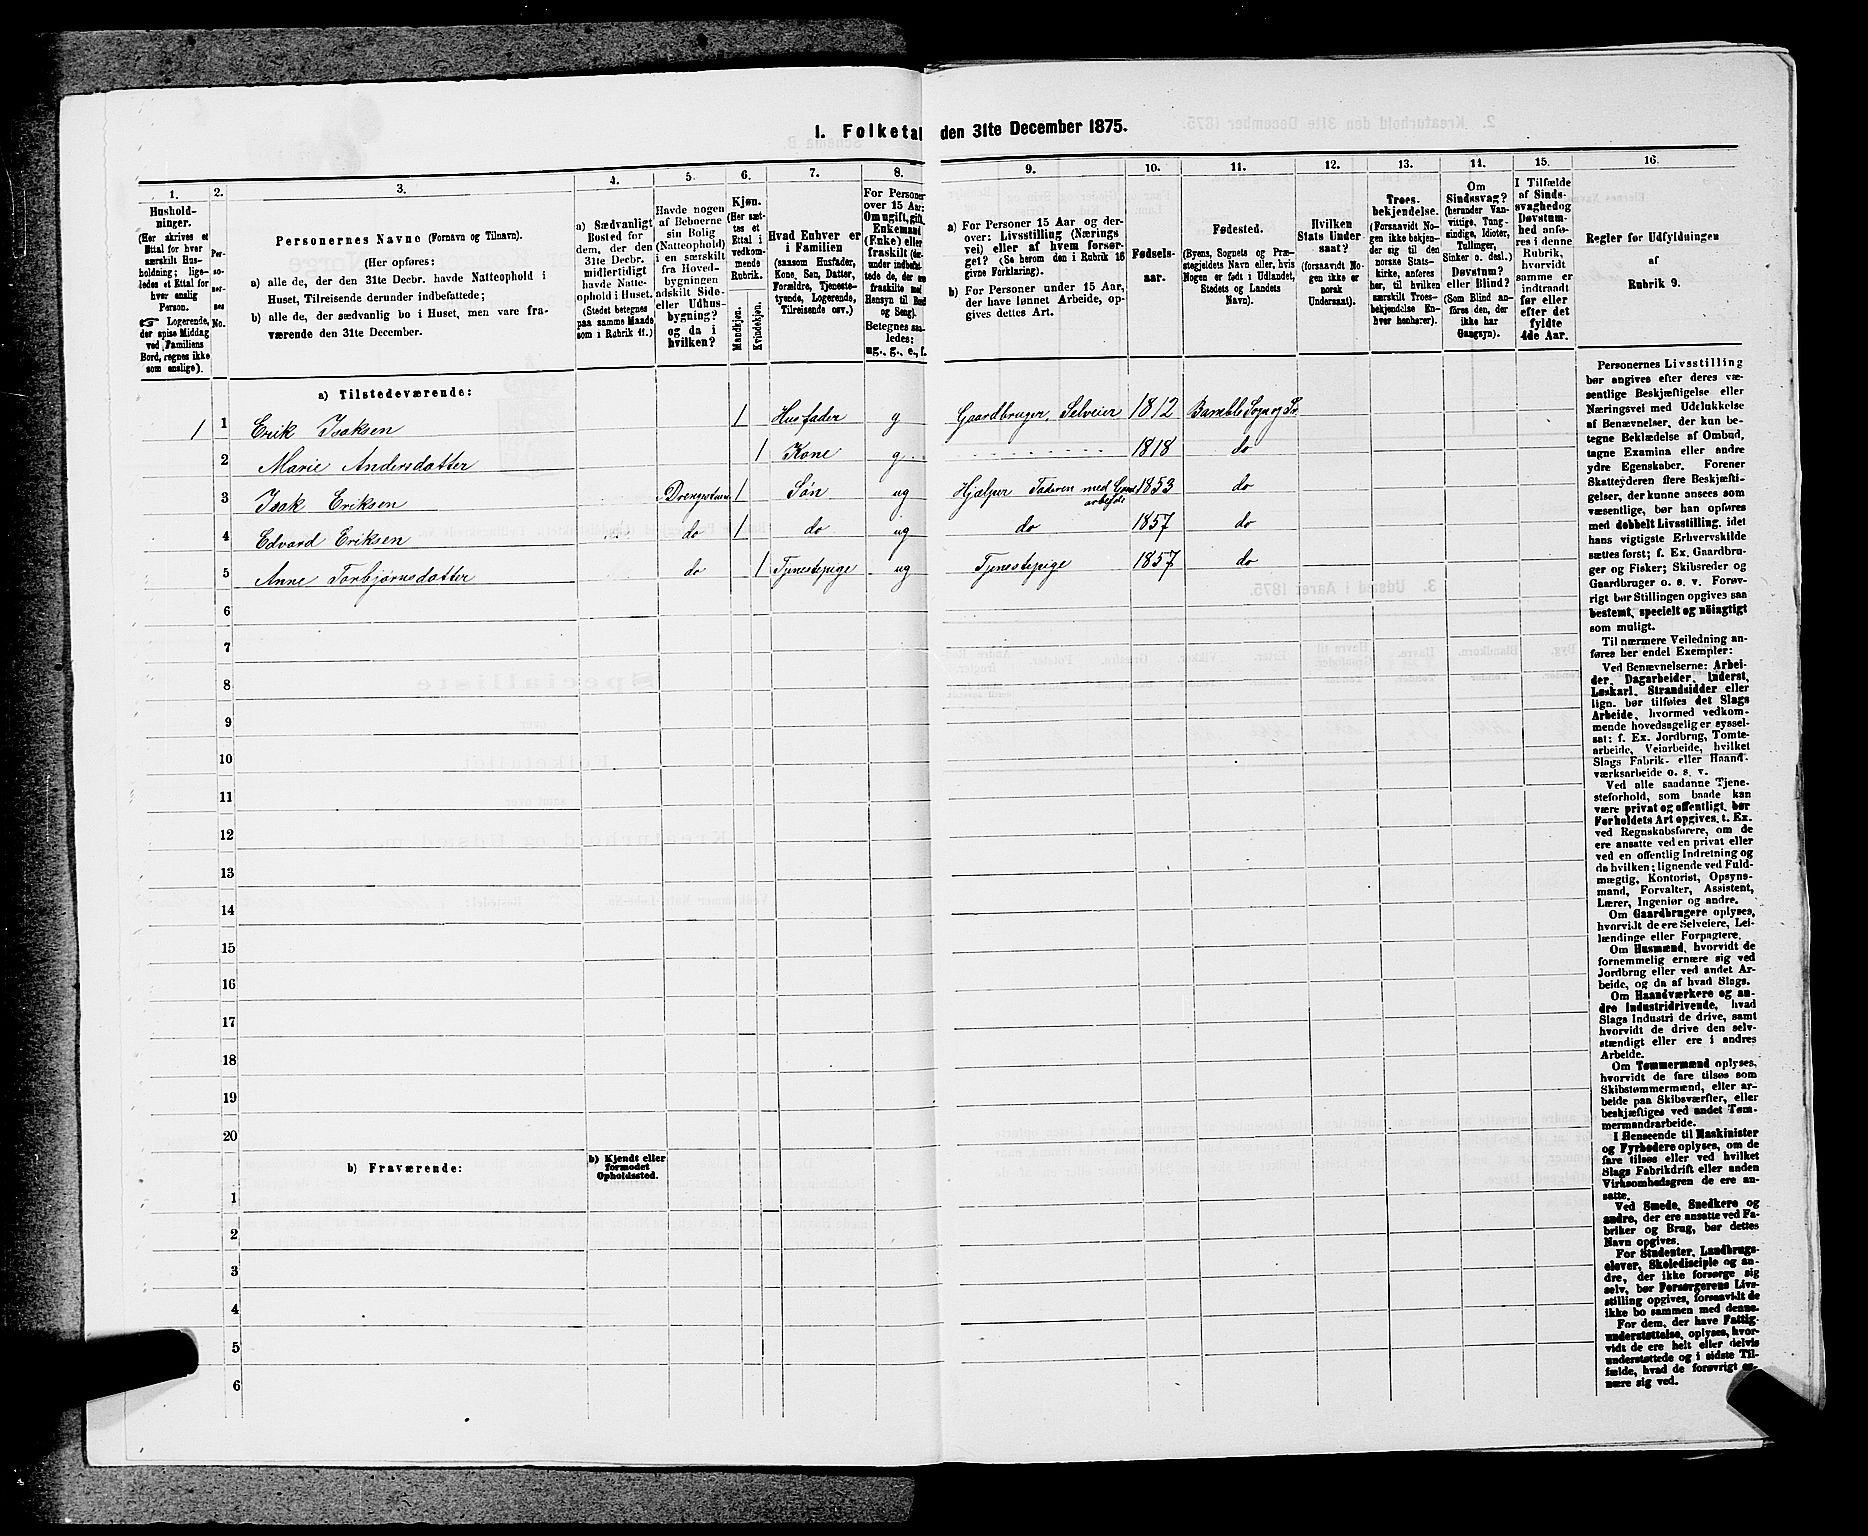 I. Folketal den 31te December 1875.
1. 2. 3. 4. 5. 6. 7. 8. 9. 10. 11. 12. 13. 14. 15. 16.
Hushold-
ninger.
(Her skrives et
Ettal for hver
særskilt Hus-
holdning; lige-
ledes et Ettal for
hver enslig
Person.
☞ Logerende,
der spise Middag
ved Familiens
Bord, regnes ikke
som enslige).
Per-
so-
ner-
nes
No.
Personernes Navne (Fornavn og Tilnavn).
(Her opføres:
a) alle de, der den 31te Decbr. havde Natteophold i
Huset, Tilreisende derunder indbefattede;
b) alle de, der sædvanlig bo i Huset, men vare fra-
værende den 31te December.
a) Sædvanligt
Bosted for
dem, der den
31te Decbr.
midlertidigt
havde Natte-
ophold i Huset.
(Stedet betegnes
paa samme Maade
som i Rubrik 11.)
Havde nogen
af Beboerne
sin Bolig
(Natteophold)
i en særskilt
fra Hoved-
bygningen
adskilt Side-
eller Udhus-
bygning?
og da i
hvilken?
Kjøn.
(Her sæt-
tes et
Ettal i
vedkom-
mende
Rubrik.
Mandkjøn.
Kvindekjøn.
Hvad Enhver er
i Familien
(saasom Husfader,
Kone, Søn, Datter,
Forældre, Tjeneste-
tyende, Logerende,
Tilreisende osv.)
For Personer
over 15 Aar:
Om ugift, gift,
Enkemand
(Enke) eller
fraskilt
Betegnes saa-
ledes:
ug., g., e., f.
a) For Personer 15 Aar og der-
over: Livsstilling (Nærings
vei) eller af hvem forsør-
get? (Se herom den i Rubrik 16
givne Forklaring).
b) For Personer under 15 Aar,
der have lønnet Arbeide, op-
gives dettes Art.
Fødsels-
aar.
Fødested.
(Byens, Sognets og Præ-
stegjeldets Navn eller, hvis
Nogen er født i Udlandet,
Stedets og Landets
Navn).
Hvilken
Stats Under
saat?
(forsaavidt No-
gen ikke er
norsk
Undersaat).
Troes-
bekjendelse.
(Forsaavidt No-
gen ikke bekjen-
der sig til den
norske Stats-
kirke, anføres
her, til hvilken
særskilt Troes-
bekjendelse En-
hver henhører).
Om
Sindssvag?
(herunder Van-
vittige, Tung-
sindige, Idioter,
Tullinger,
Sinker o. desl.)
Døvstum?
eller Blind?
(Som Blind an-
føres den, der
ikke har
Gangsyn).
I Tilfælde
af Sinds-
svaghed og
Døvstum-
hed anfø-
res i denne
Rubrik,
hvorvidt
samme er
indtraadt
før eller
efter det
fyldte
4de Aar.
Regler for Udfyldningen
af
Rubrik 9.
a) Tilstedeværende:
1 1 Erik Isaksen 1 Husfader g Gaardbruger, Selveier 1812 Bamble Sogn og
2 Marie Andersdatter 1 Kone g 1818 do
3 Isak Eriksen Drengestuen 1 Søn ug Hjælper Faderen med 1853 do
4 Edvard Eriksen do 1 do ug do 1857 do
5 Anne Torbjørnsdatter do 1 Tjenestepige ug Tjenestepige 1857 do
6
7
8
9
10
11
12
13
14
15
16
17
18
19
20
b) Fraværende:
b) Kjendt eller
formodet
Opholdssted.
1
2
3
4
5
6
Personernes Livsstilling
bør angives efter deres væ-
sentlige Beskjæftigelse eller
Næringsvei med Udelukkelse
af Benævnelser, der kun be-
tegne Beklædelse af Ombud,
tagne Examina eller andre
ydre Egenskaber. Forener
Skatteyderen flere Beskjæfti-
gelser, der kunne ansees som
væsentlige, bør han opføres
med dobbelt Livsstilling, idet
hans vigtigste Erhvervskilde
sættes først; f. Ex. Gaardbru-
ger og Fisker; Skibsreder og
Gaardbruger o. s. v. Forøv-
rigt bør Stillingen opgives saa
bestemt, specielt og nøiagtigt
som muligt.
Til nærmere Veiledning an-
føres her endel Exempler:
Ved Benævnelserne: Arbei-
der, Dagarbeider, Inderst,
Løskarl, Strandsidder eller
lign. bør tilføies det Slags
Arbeide, hvormed vedkom-
mende hovedsagelig er syssel-
sat; f. Ex. Jordbrug, Tomte-
arbeide, Veiarbeide, hvilket
Slags Fabrik- eller Haand-
værksarbeide o. s. v.
Ved alle saadanne Tjene-
steforhold, som baade kan
være privat og offentligt, bør
Forholdets Art opgives, t. Ex.
ved Regnskabsførere, om de
ere ansatte ved en privat eller
ved en offentlig Indretning og
da hvilken; lignende ved Fuld-
mægtig, Kontorist, Opsyns-
mand, Forvalter, Assistent,
Lærer, Ingeniør og andre.
Om Gaardbrugere oplyses,
hvorvidt de ere Selveiere, Lei-
lændinge eller Forpagtere.
Om Husmænd, hvorvidt de
fornemmelig ernære sig ved
Jordbrug eller ved andet Ar-
beide, og da af hvad Slags.
Om Haandværkere og an-
dre Industridrivende, hvad
Slags Industri de drive, samt
hvorvidt de drive den selv-
stændigt eller ere i andres
Arbeide.
Om Tømmermænd oplyses,
hvorvidt de fare tilsøs som
Skibstømmermænd, eller ar-
beide paa Skibsværfter, eller
beskjæftiges ved andet Tøm-
mermandsarbeide.
I Henseende til Maskinister
og Fyrbødere oplyses, om de
fare tilsøs eller ved hvilket
Slags Fabrikdrift eller anden
Virksomhedsgren de ere an-
satte.
Ved Smede, Snedkere og
andre, der ere ansatte ved Fa-
briker og Brug, bør dettes
Navn opgives.
For Studenter, Landbrugs-
elever, Skoledisciple og an-
dre, der ikke forsørge sig
selv, bør Forsørgerens Livs-
stilling opgives, forsaavidt de
ikke bo sammen med denne.
For dem, der have Fattig-
understøttelse, oplyses, hvor-
vidt de ere helt eller delvis
understøttede og i sidste Til-
fælde, hvad de forøvrigt er-
nære sig ved.